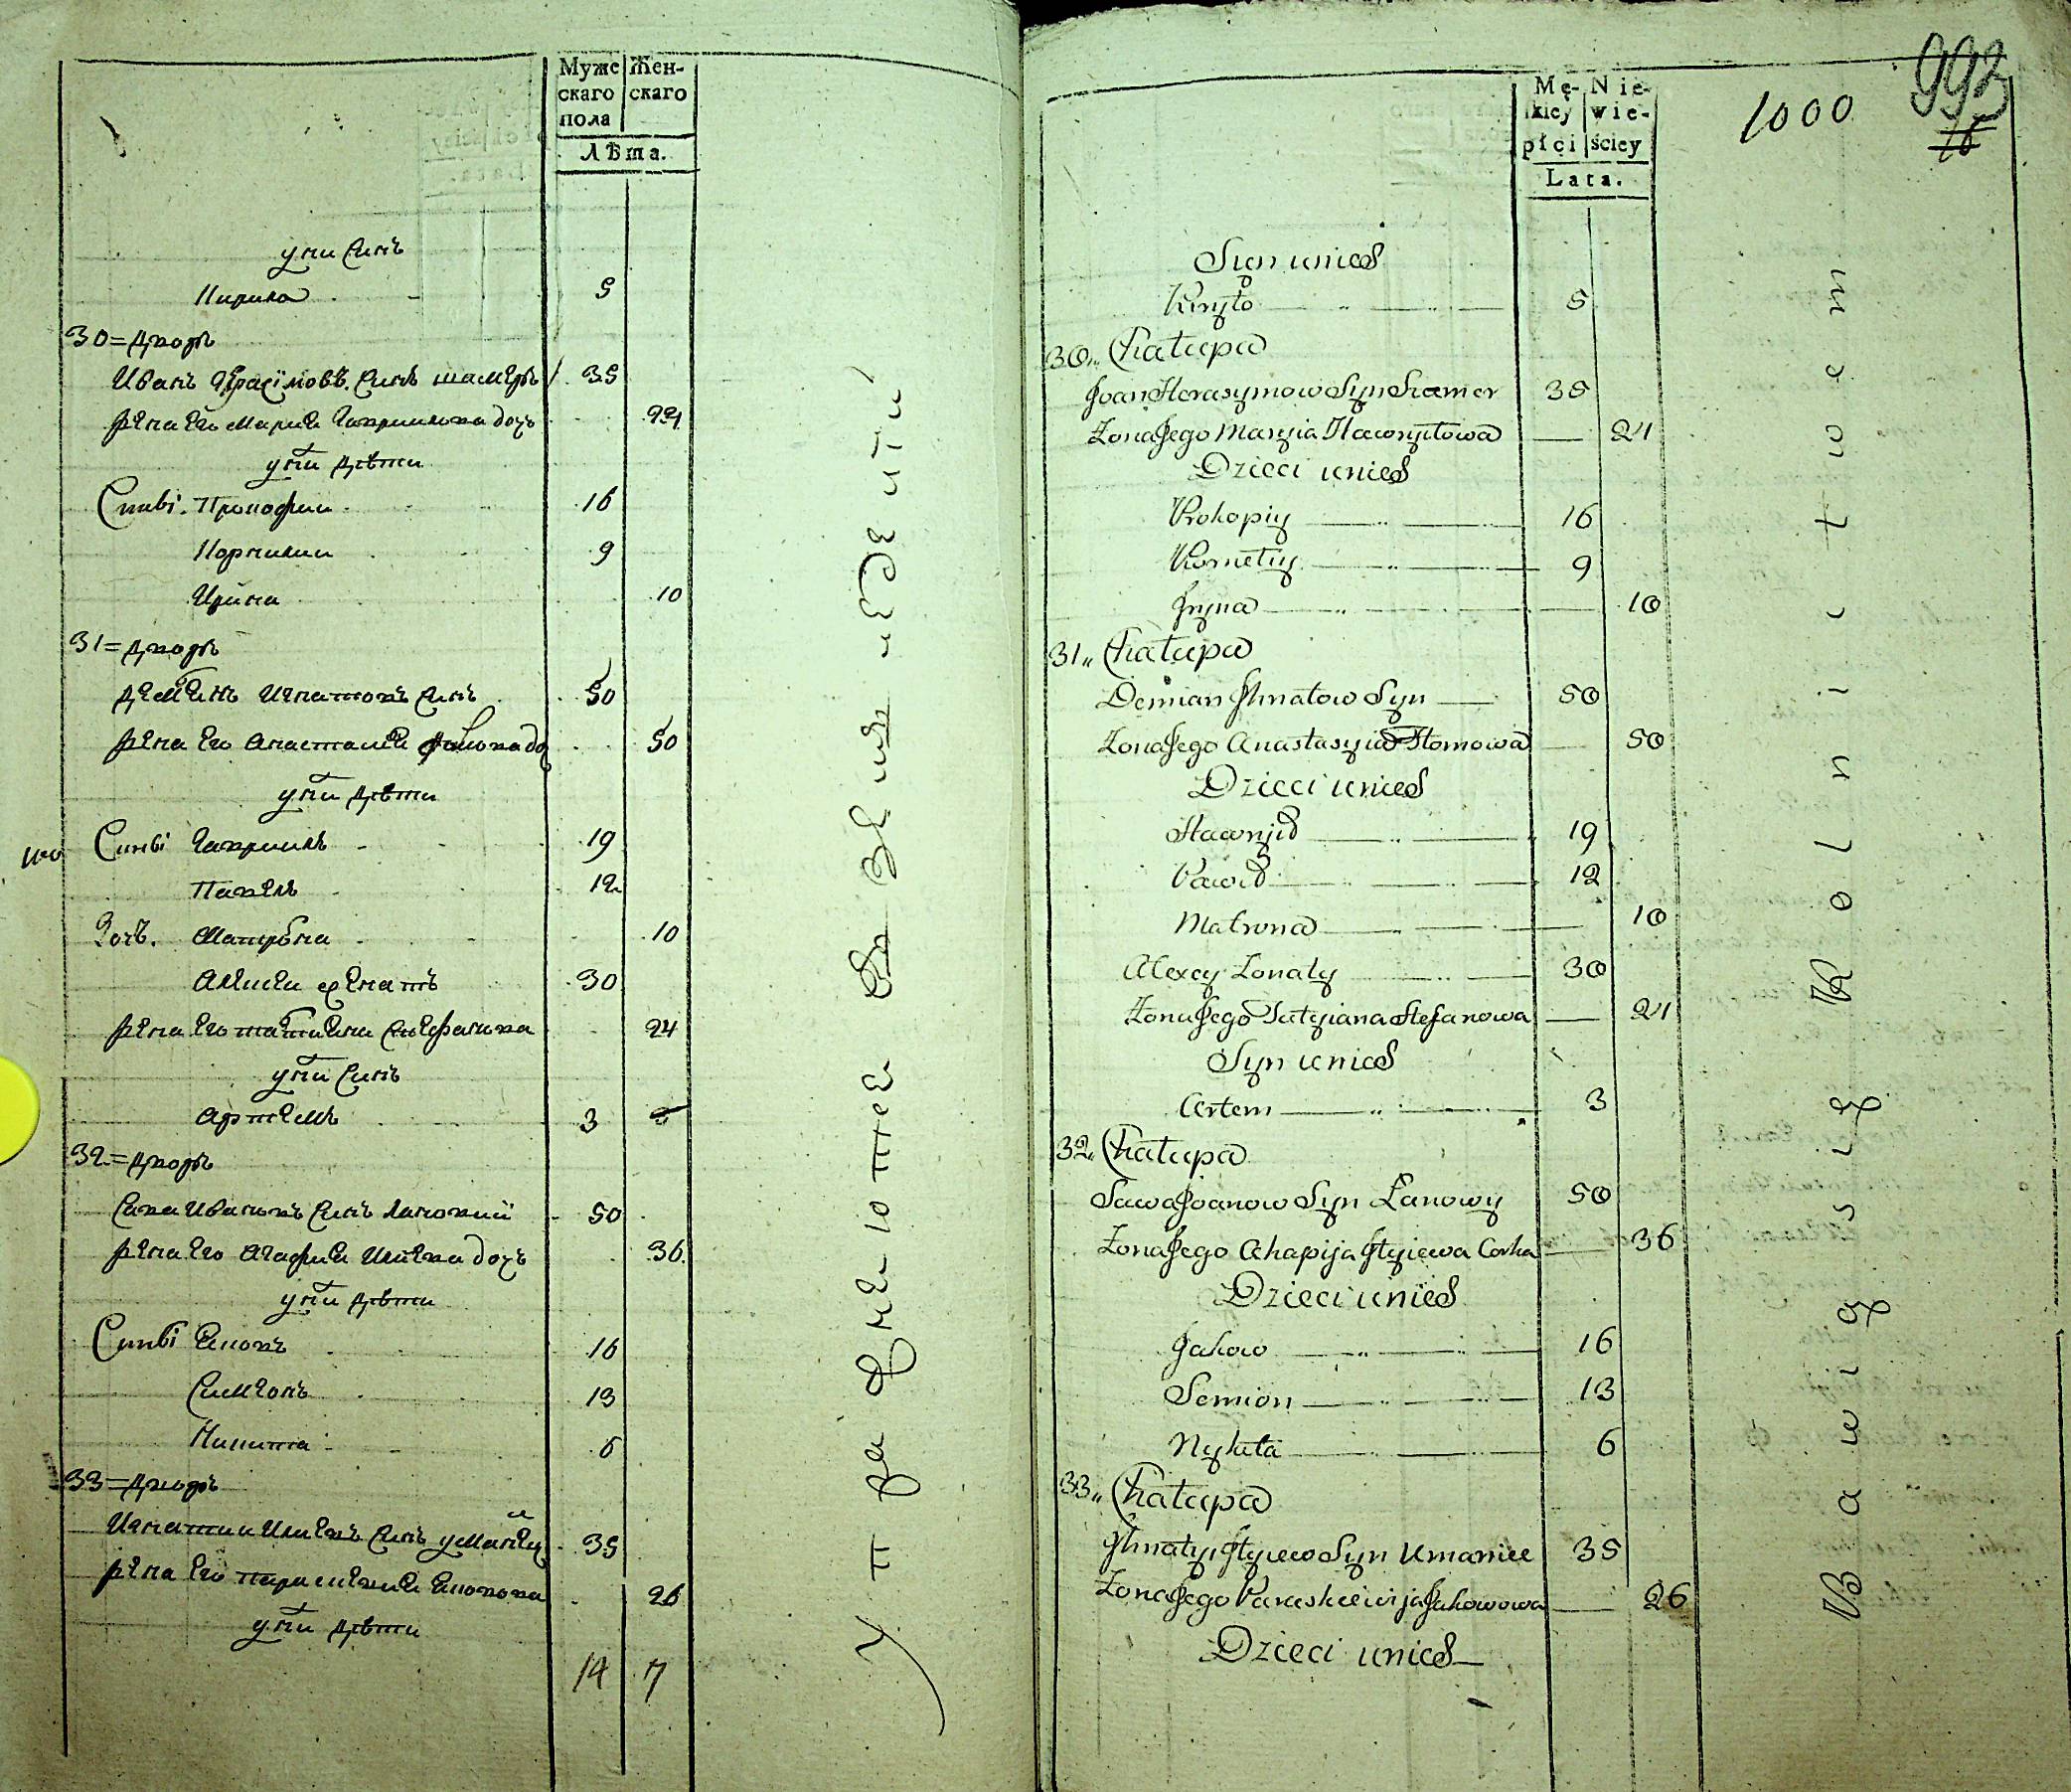 Муже Жен-
скаго скаго
пола
Лѣта.
у ни Синъ
Кирило 5
30=Дворъ
Иванъ Герасимовъ Синъ шамеръ 35
жена Его Мария Гавриилова дочъ 24
у ни дѣти
Синві Прокофии 16
Корнилии 9
Ирина 10
31=Дворъ
Демеянъ Игнатовъ Синъ 50
жена Его Анастасия Фомова до 50
у ни дѣти
Синві Гавриилъ 19
Павелъ 12
100
Дочъ. Матрона 10
Алексеи 30
жена Его татияна Стефанова 24
у ни Синъ
Артемъ 3
32=Дворъ
Сава Ивановъ Синъ Лановий 50
жена Его Агафия Илиева дочъ 36
у ни дѣти
Синві Яковъ 16
Симеонъ 13
Никита 6
33=Дворъ
Игнатии Илиевъ Синъ уманец 35
жена Его параскевия Яковова 26
у ни дѣти
14 7
Mę- Nie-
kiey wie-
płci ściey
Lata.
1000
993
16
Syn unich
Kiryło 5
30,, Chałupa
Joan Herasymow Syn Szamer 35
Żona Jego Maryia Hawryłowa 24
Dzieci unich
Prokopiy 16
Korneliy 9
Jryna 10
31,, Chałupa
Demian Jhnatow Syn 50
Żona Jego Anastasyia Homowa 50
Dzieci unich
Hawryił 19
Paweł 12
Matrona 10
Alexey Żonaty 30
Żona Jego Tatyiana Stefanowa 24
Syn unich
Artem 3
32,, Chałupa
Sawa Joanow Syn Łanowy 50
Żona Jego Ahapija Jlyiewa Corka 36
Dzieci unich
Jakow 16
Semion 13
Nykita 6
33,, Chałupa
Jhnatyi Jlyiew Syn Umaniec 35
Żona Jego Paraskiewija Jakowowa 26
Dzieci unich
Bawiący się Rolnictwem